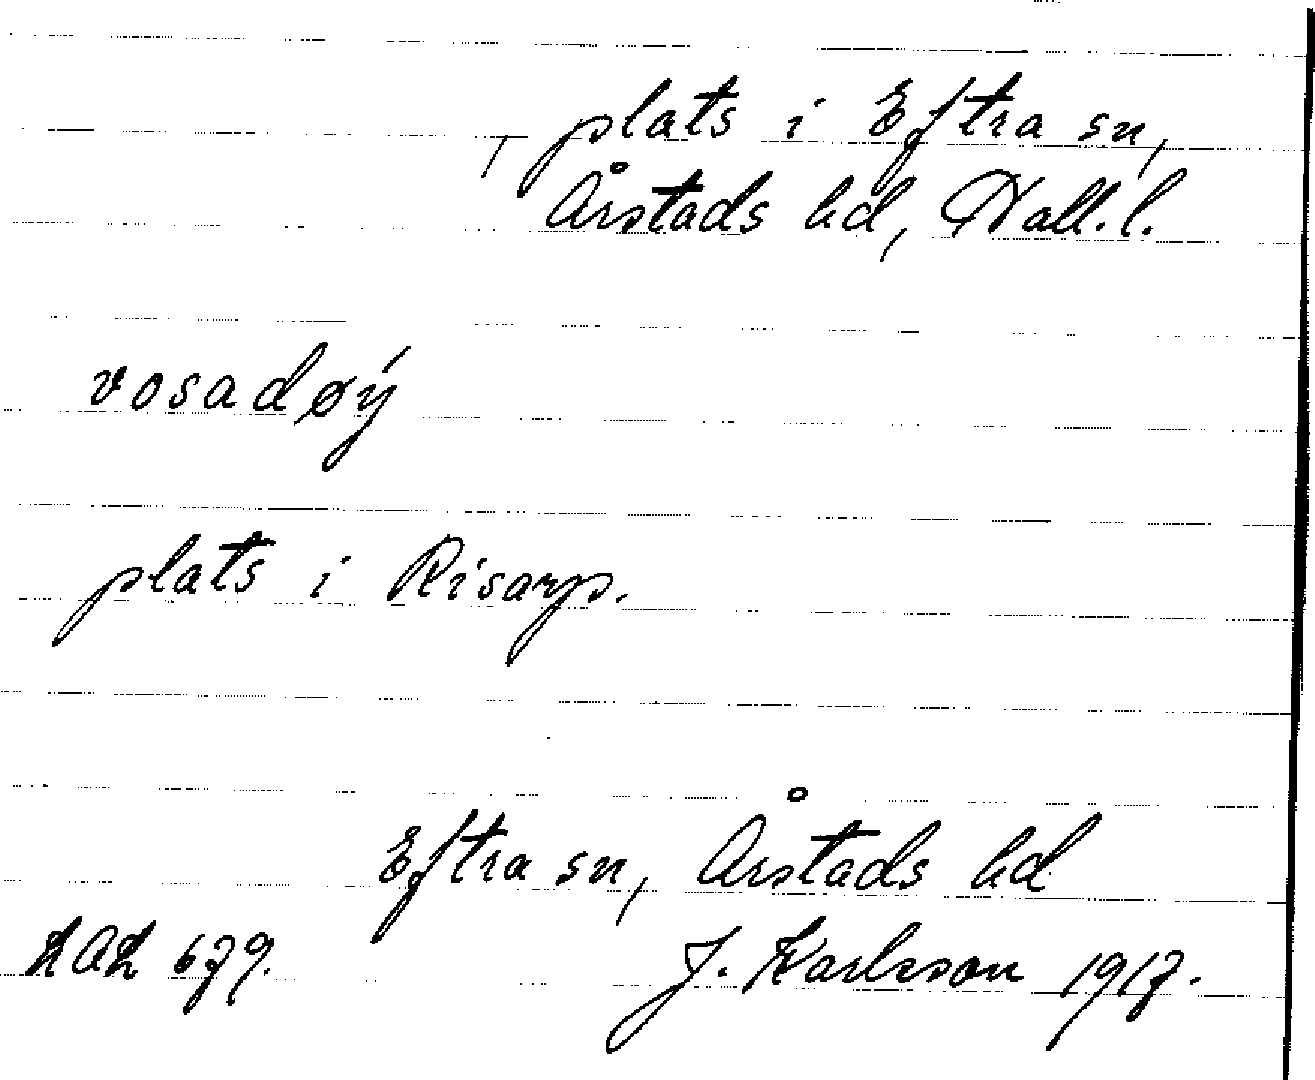 , plats i Eftra sn,
Årstads hd, Hall. l.
vosadøý
plats i Risarp.
Eftra sn, Årstads hd
LAL 679. J. Karlsson 1917.